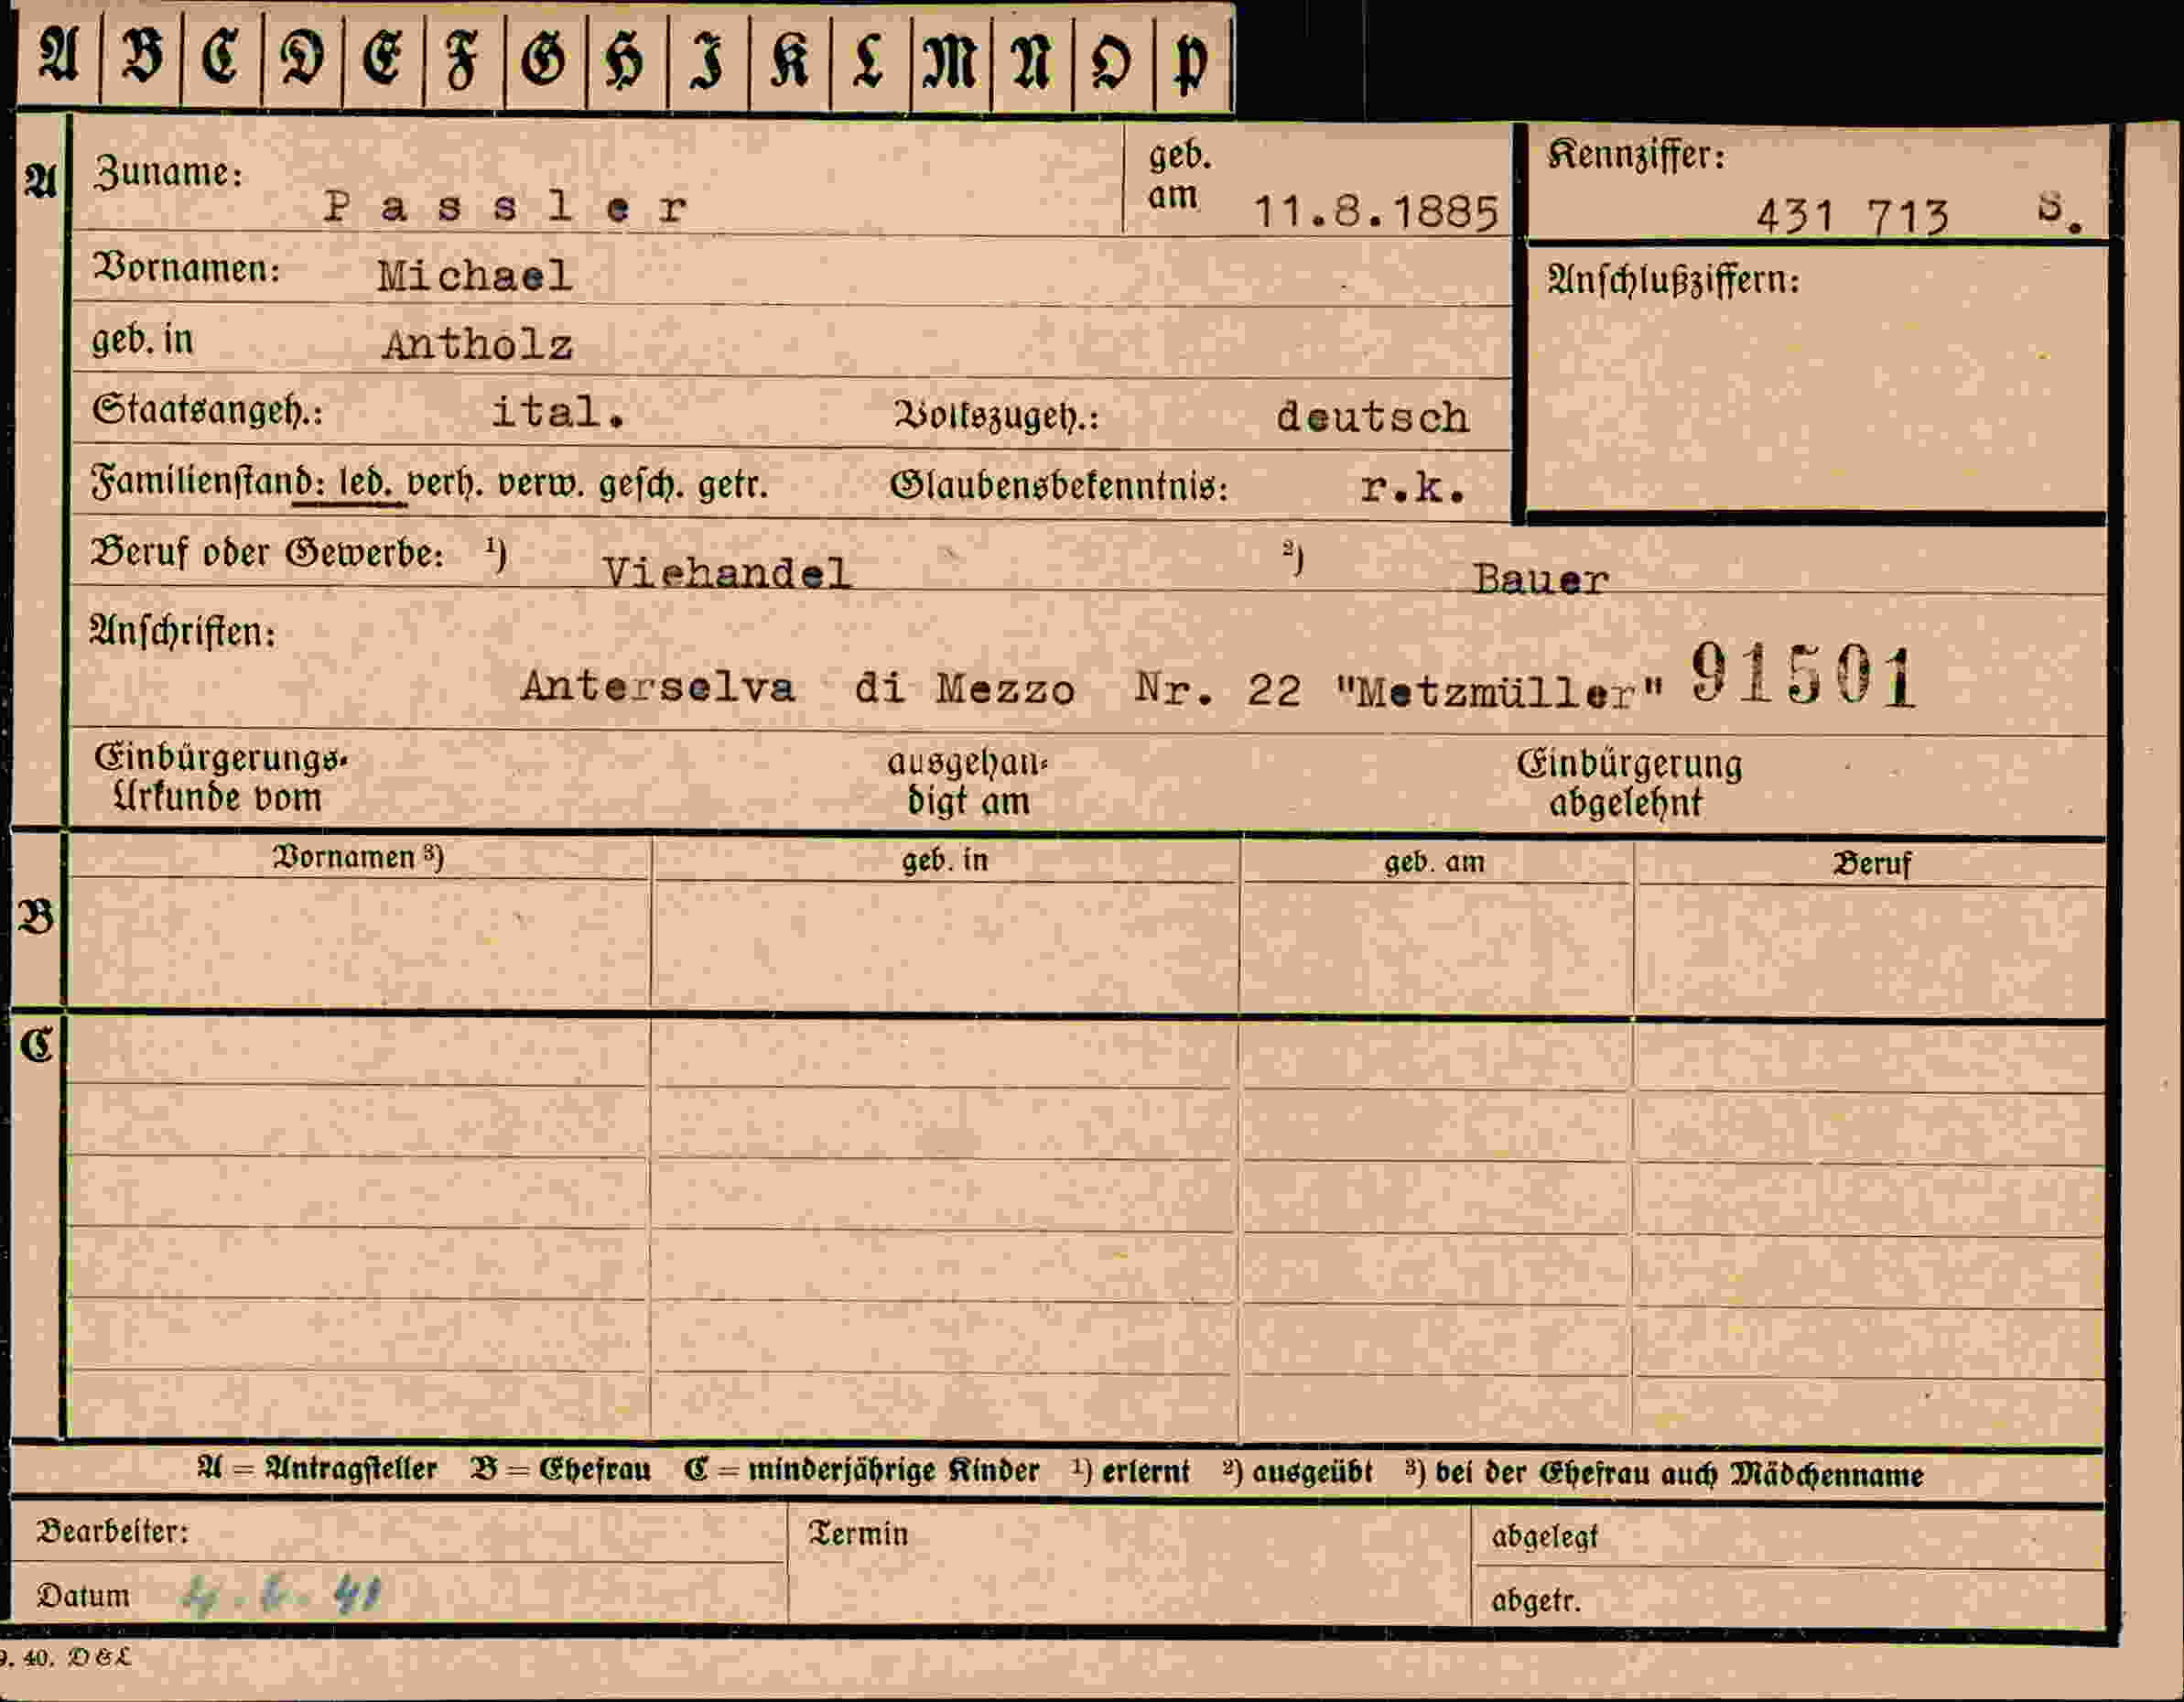 A B C D E F G H I K L M N O P
A Zuname: Passler geb. am 11.8.1885 Kennziffer: 431 713 S.
Vornamen: Michael Anschlußziffern:
geb. in Antholz
Staatsangeh.: ital. Volkszugeh.: deutsch
Familienstand: led. verh. verw. gesch. getr. Glaubensbekenntnis: r.k.
Beruf oder Gewerbe: ¹) Viehandel ²) Bauer
Anschriften:
Anterselva di Mezzo Nr. 22 "Metzmüller" 91501
Einbürgerungs- ausgehän- Einbürgerung
Urkunde vom digt am abgelehnt
Vornamen ³) geb. in geb. am Beruf
B
C
A = Antragsteller B = Ehefrau C = minderjährige Kinder ¹) erlernt ²) ausgeübt ³) bei der Ehefrau auch Mädchenname
Bearbeiter: Termin abgelegt
Datum 41 abgetr.
9. 40. D&L